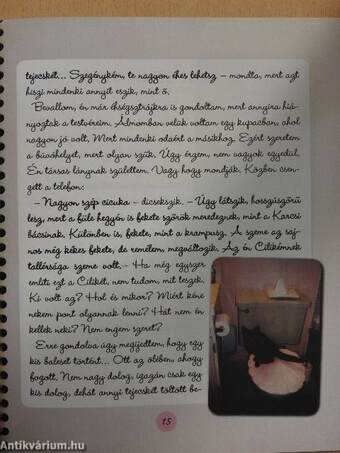 tejecskét... Szegénykém, te nagyon éhes lehetsz – mondta, mert azt
hiszi mindenki annyit eszik, mint ő.
Bevallom, én már éhségsztrájkra is gondoltam, mert annyira hiá-
nyoztak a testvéreim. Álmomban velük voltam egy kupacban, ahol
nagyon jó volt. Mert mindenki odaért a másikhoz. Ezért szeretem
a búvóhelyet, mert olyan szűk. Úgy érzem, nem vagyok egyedül.
Én társas lánynak születtem. Vagy hogy mondják. Közben csen-
gett a telefon:
– Nagyon szép cicuka – dicsekszik. – Úgy látszik, hosszúszőrű
lesz, mert a füle hegyén is fekete szőrök merednek, mint a Karcsi
bácsinak. Különben is, fekete, mint a krampusz. A szeme az saj-
nos még kékes fekete, de remélem, megváltozik. Az én Cilikémnek
tallérsárga szeme volt. – Ha még egyszer
említi ezt a Cilikét, nem tudom, mit teszek.
Ki volt az? Hol és mikor? Miért kéne
nekem pont olyannak lenni? Hát nem én
kellek neki? Nem engem szeret?
Erre gondolva úgy megijedtem, hogy egy
kis baleset történt... Ott az ölében, ahogy
fogott. Nem nagy dolog, igazán csak egy
kis dolog, dehát annyi tejecskét töltött be-
15
Antikvárium.hu